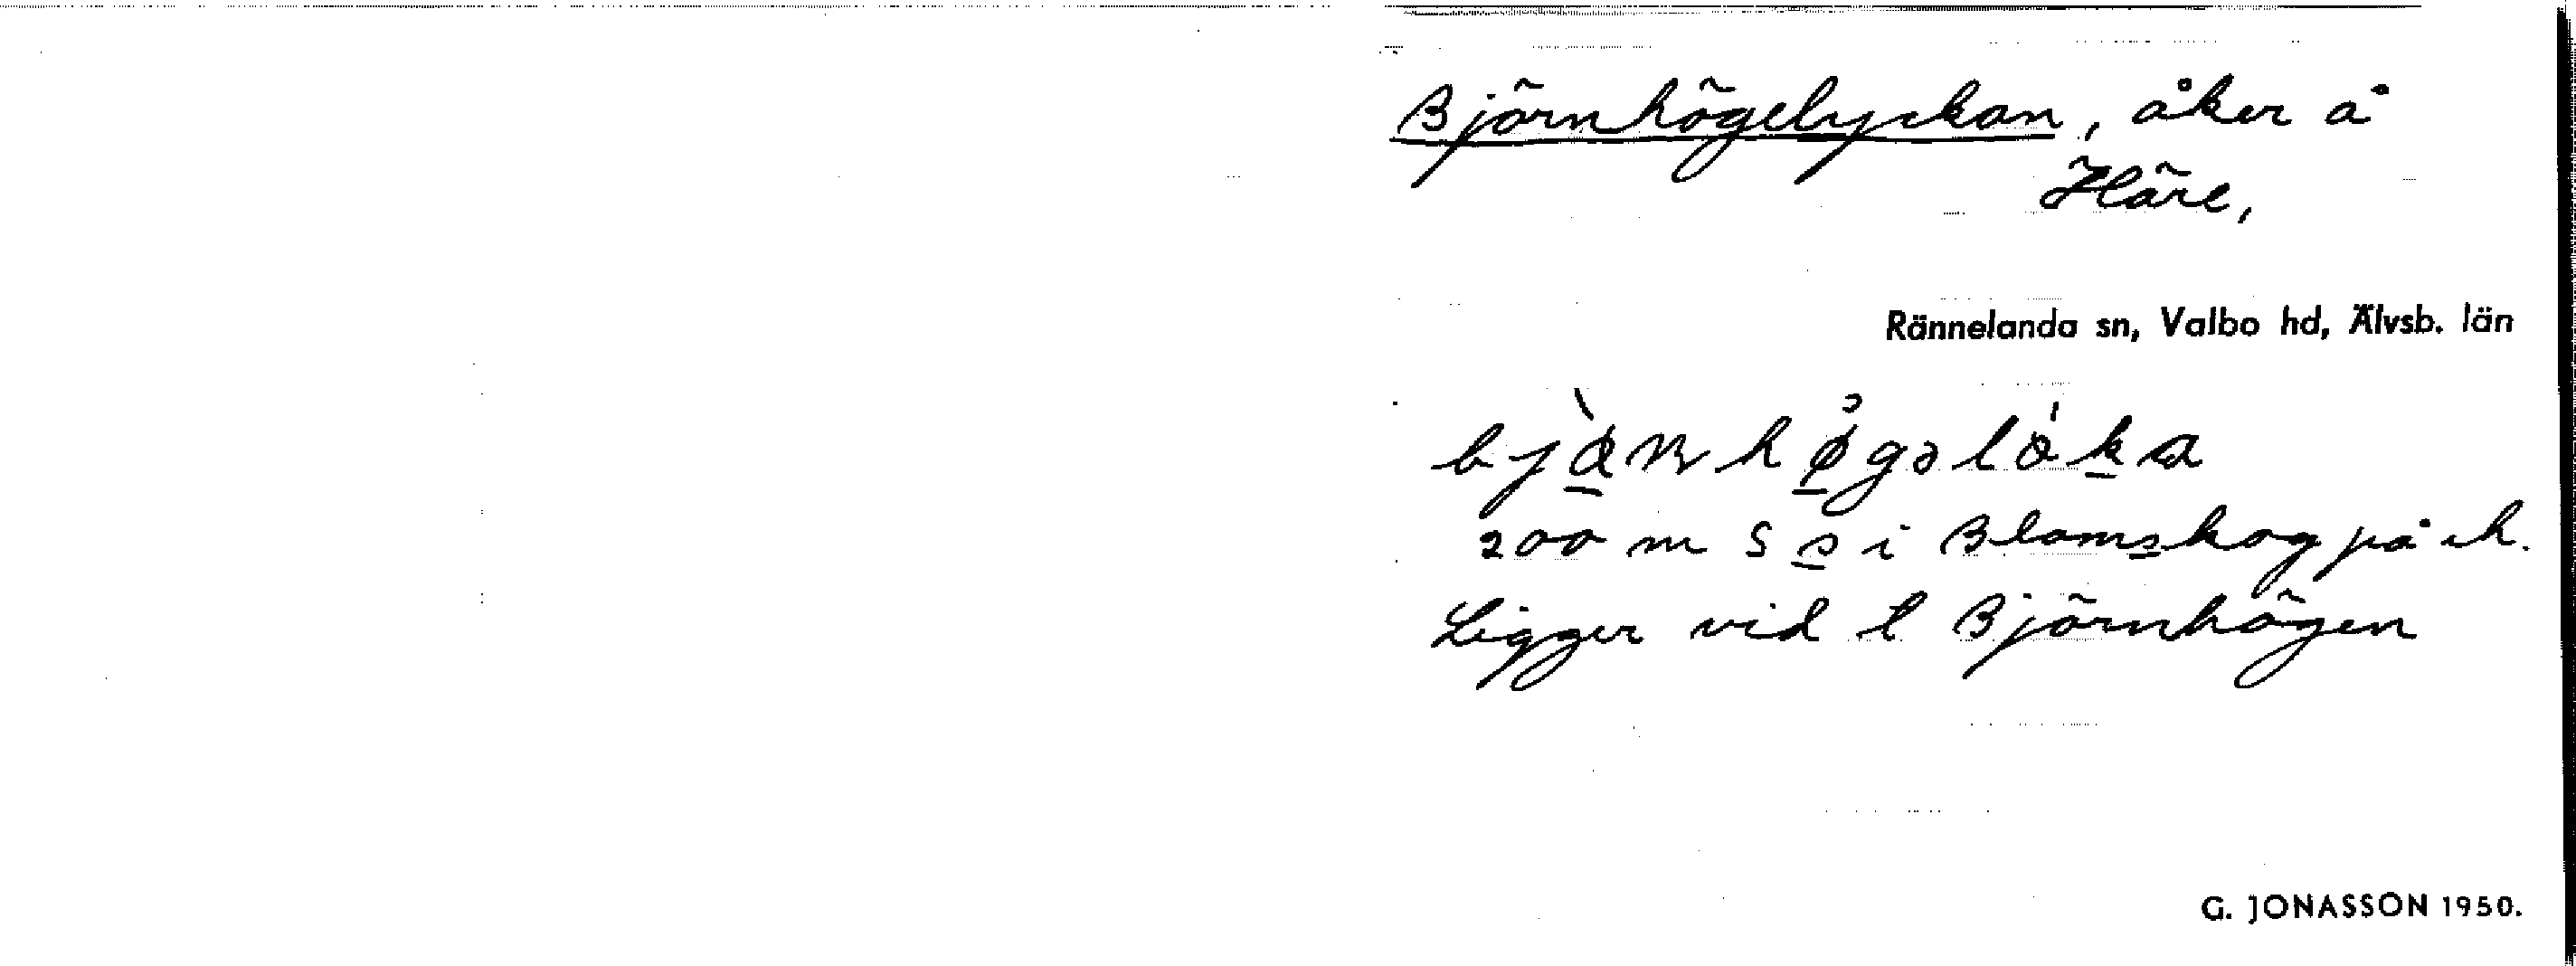 Björnhögelyckan, åker å
Häre,
Rännelanda sn, Valbo hd, Älvsb. län
200 m S s i Blomskog på ek.
Ligger vid t Björnhögen
G. JONASSON 1950.